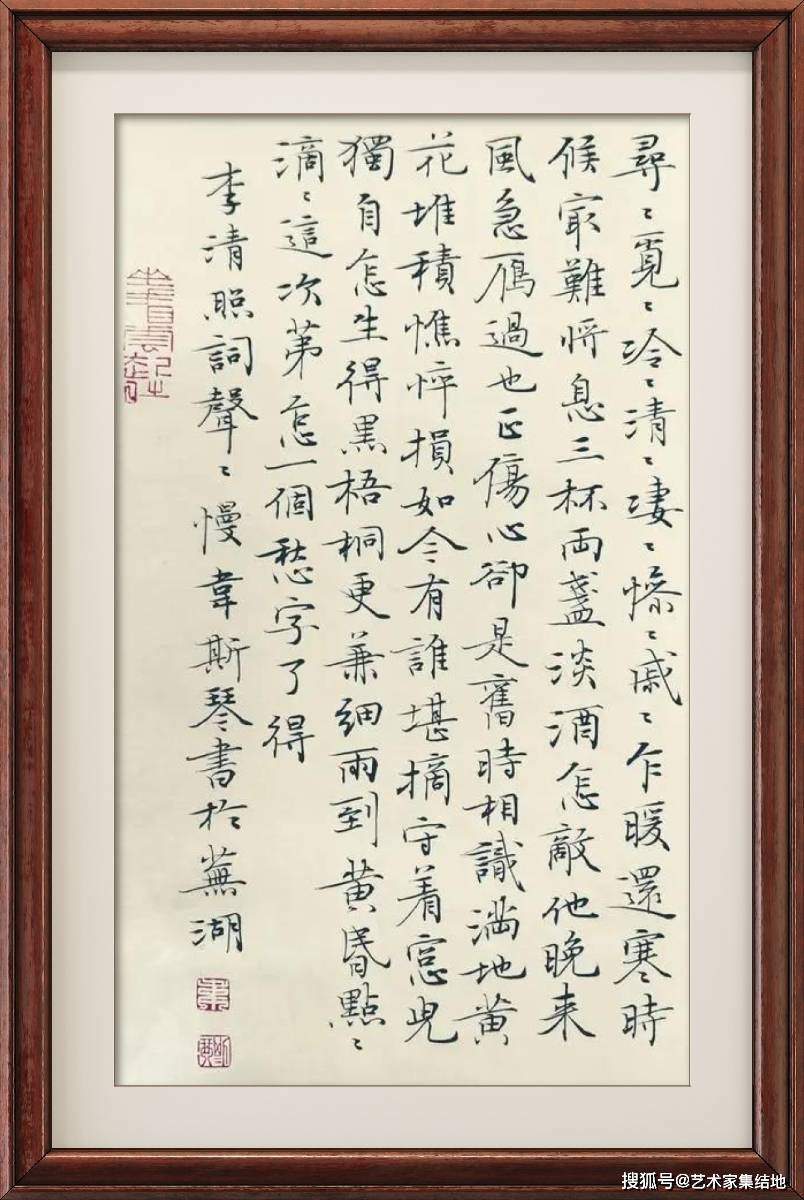 尋〻覓〻冷〻清〻凄〻慘〻戚〻乍暖還寒時
候㝡難將息三杯兩盞淡酒怎敵他晚来
風急鴈過也正傷心卻是舊時相識滿地黃
花堆積憔悴損如今有誰堪摘守着窓兒
獨自怎生得黑梧桐更兼細雨到黃昏點〻
滴〻這次第怎一個愁字了得
李清照詞聲〻慢韋斯琴書於蕪湖
搜狐号@艺术家集结地